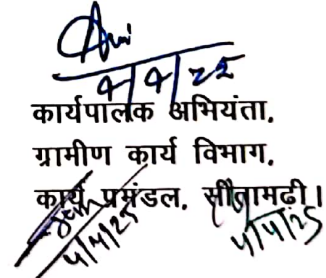 4/4/25
कार्यपालक अभियंता,
ग्रामीण कार्य विभाग,
कार्य प्रमंडल, सीतामढ़ी।
4/4/25 4/4/25